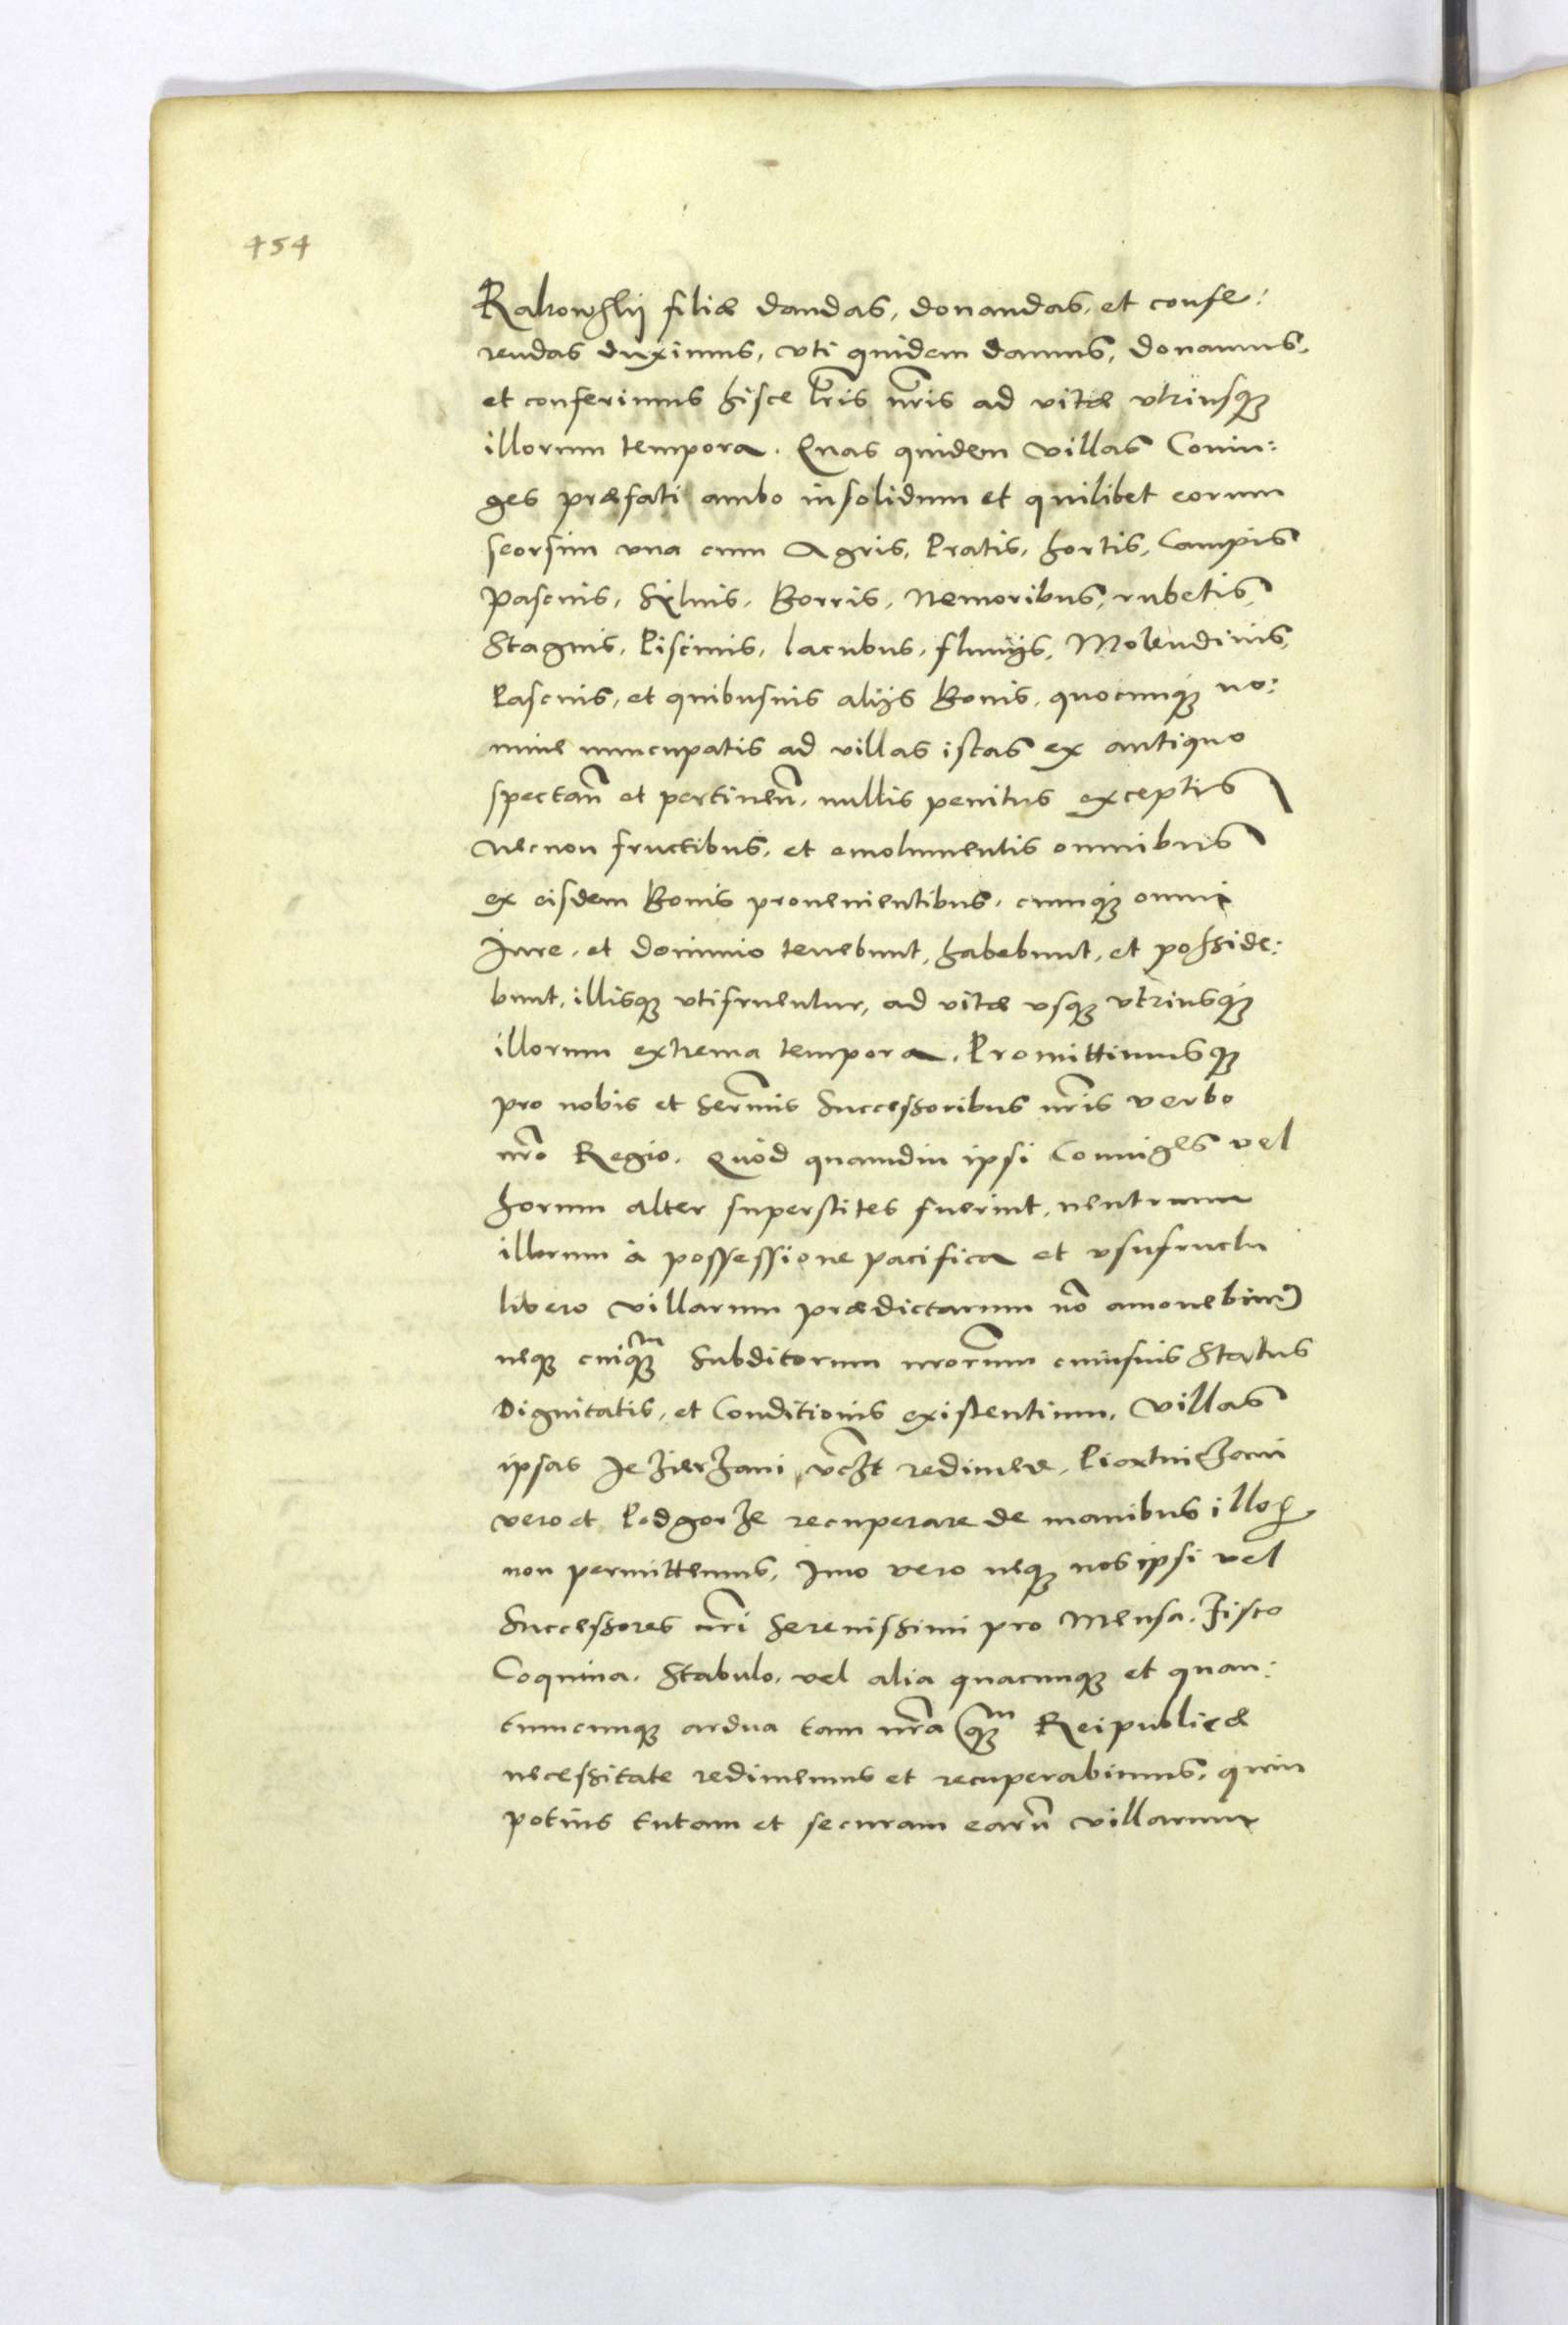 454
Rakowskÿ filiæ dandas, donandas, et confe:
rendas duximus, vti quidem damus, donamus,
et conferimus hisce lris nris ad vitæ vtriusque
illorum tempora. Quas quidem villas Coniu:
ges præfati ambo insolidum et quilibet eorum
seorsim vna cum Agris, Pratis, hortis, Campis
pascuis, Siluis, Borris, Nemoribus, rubetis,
Stagnis, Piscinis, lacubus, fluuijs, Molendinis,
Pascuis, et quibusuis alijs Bonis, quocunque no:
mine nuncupatis ad villas istas ex antiquo
spectan et pertinen, nullis penitus exceptis
necnon fructibus, et emolumentis omnibus
ex eisdem Bonis prouenientibus, cumque omni
Jure, et dominio tenebunt, habebunt, et posside:
bunt, illisque vtifruentur, ad vitæ vsque vtriusque
illorum extrema tempora. Promittimusque
pro nobis et Sermis Successoribus nris verbo
nro Regio. Quòd quamdiu ipsi Coniuges vel
horum alter superstites fuerint, neutrum
illorum à possessione pacifica et vsufructu
libero villarum prædictarum nō amouebimus
neque cuiquam Subditorum nrorum cuiusuis Status
Dignitatis, et Conditionis existentium, villas
ipsas Jezierzani redimere,
vero et Podgorze recuperare de manibus illorum
non permittemus, Imo vero neque nos ipsi vel
Successores nri Serenissimi pro Mensa, Fisco
Coquina, Stabulo, vel alia quacunque et quan:
tumcunque ardua tam nra quam Reipublicæ
necessitate redimemus et recuperabimus, quin
potius tutam et securam earū villarum